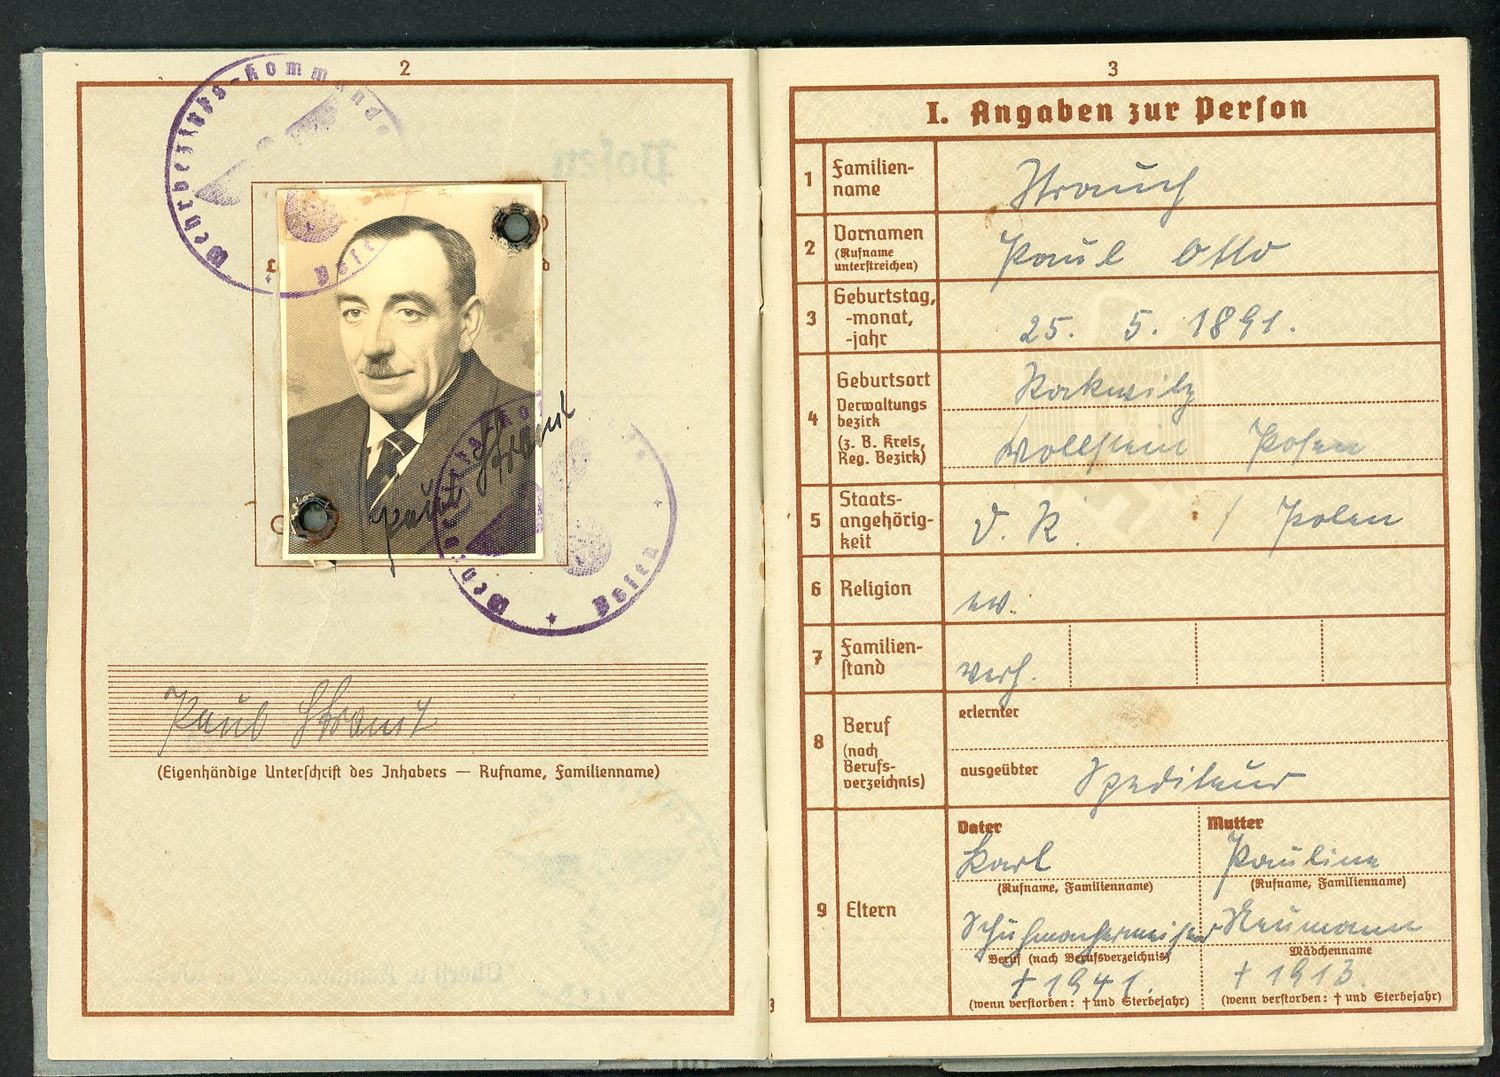 2
Wehrbezirks-Kommando
Posen
Paul Strauch
Wehrbezirks-Ko
Posen
Paul Strauch
(Eigenhändige Unterschrift des Inhabers — Rufname, Familienname)
3
I. Angaben zur Person
1 Familien-
name
Strauch
2 Vornamen
(Rufname
unterstreichen)
Paul Otto
3 Geburtstag,
-monat,
-jahr
25. 5. 1891.
4 Geburtsort
Verwaltungs
bezirk
(z. B. Kreis,
Reg. Bezirk)
Rakwitz
Wollstein Posen
5 Staats-
angehörig-
keit
D. R. / Polen
6 Religion
ev.
7 Familien-
stand
verh.
8 Beruf
(nach
Berufs-
verzeichnis)
erlernter
ausgeübter Spediteur
9 Eltern
Vater Mutter
Karl Pauline
(Rufname, Familienname) (Rufname, Familienname)
Schuhmachermeister Neumann
Beruf (nach Berufsverzeichnis) Mädchenname
† 1941. † 1913.
(wenn verstorben: † und Sterbejahr) (wenn verstorben: † und Sterbejahr)